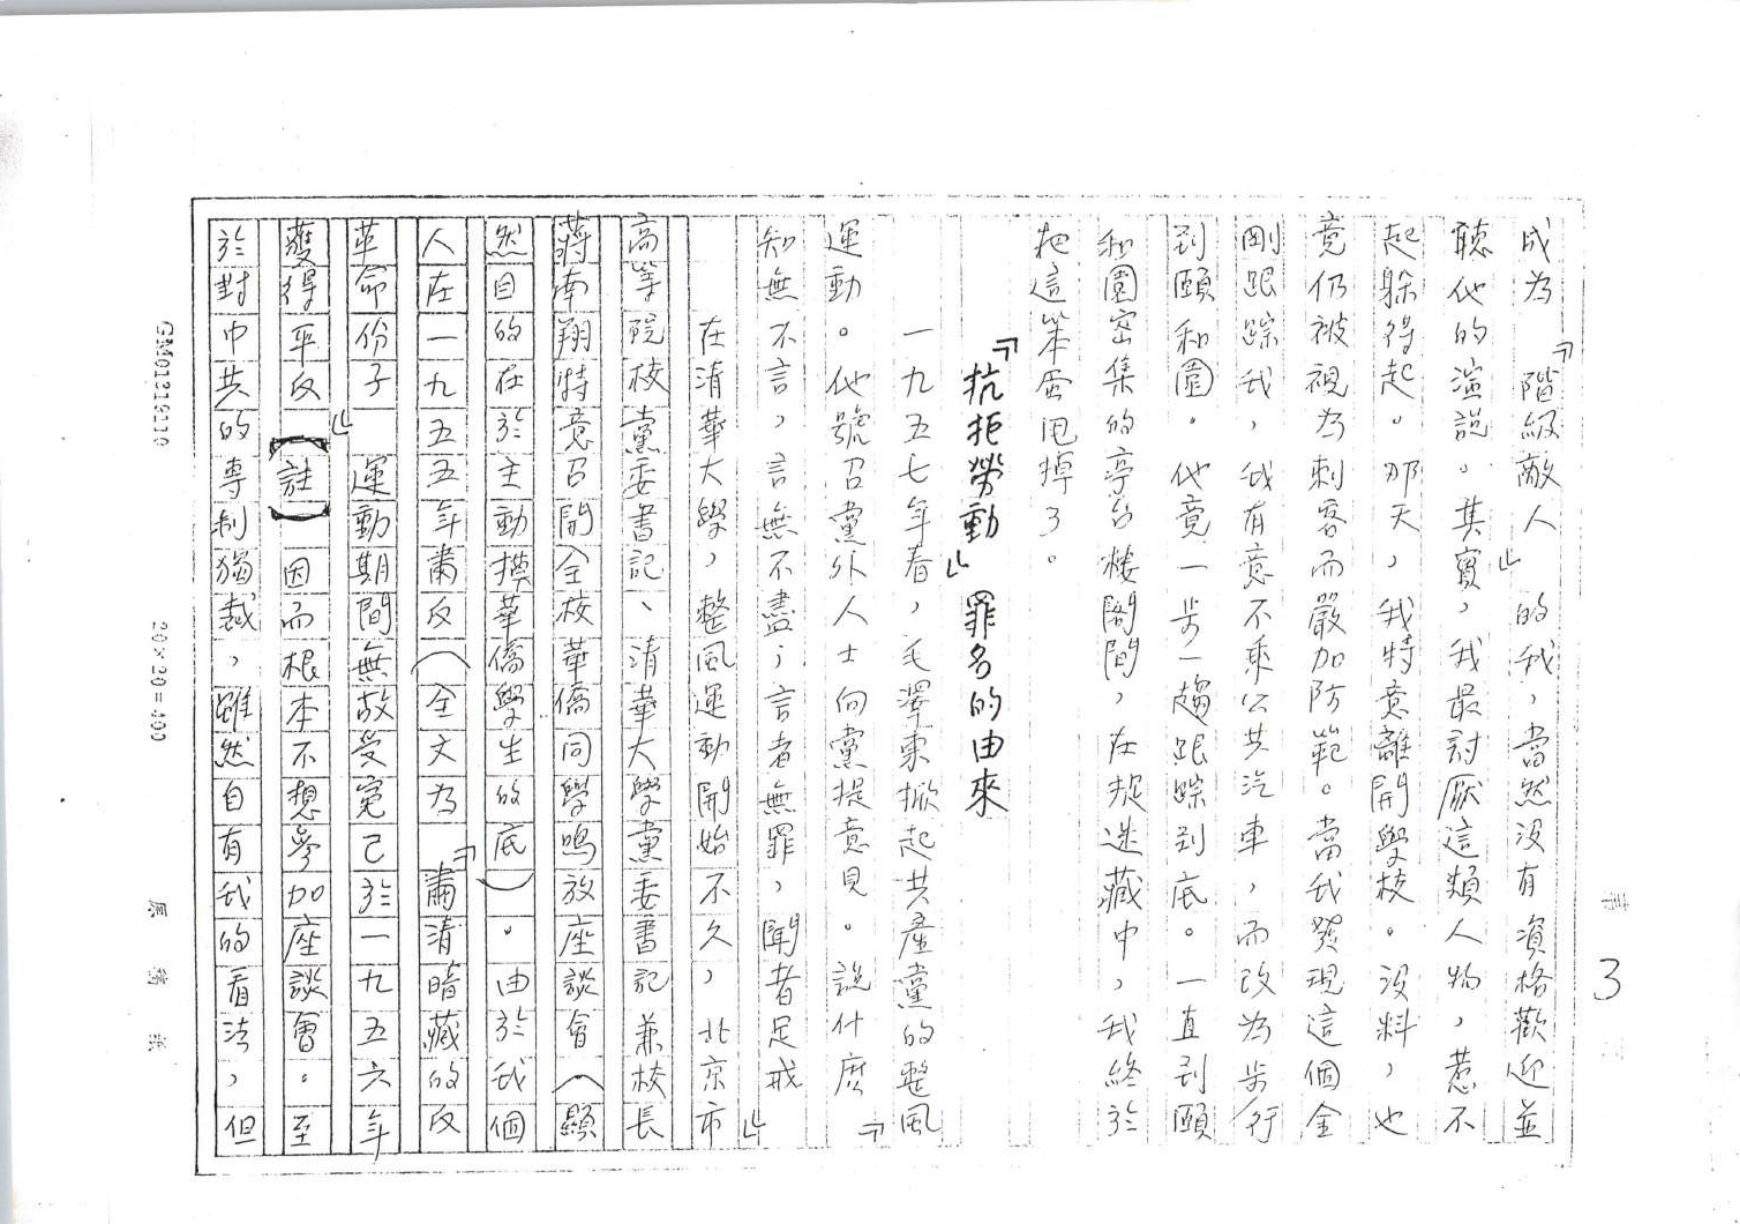 3
成為『階級敵人』的我，當然沒有資格歡迎並
聽他的演説。其實，我最討厭這類人物，惹不
起躲得起。那天，我特意離開學校。沒料，也
竟仍被視為刺客而嚴加防範。當我發現這個金
剛跟踪我，我有意不乘公共汽車，而改為步行
到頤和園。他竟一步一趨跟踪到底。一直到頤
和園密集的亭台楼閣間，在捉迷藏中，我終於
把這笨蛋甩掉了。
『抗拒勞動』罪名的由來
一九五七年春，毛澤東掀起共產黨的整風
運動。他號召黨外人士向黨提意見。說什麽『
知無不言，言無不盡；言者無罪，聞者足戒』
在清華大學，整風運動開始不久，北京市
高等院校黨委書記、清華大學黨委書記兼校長
蔣南翔特意召開全校華僑同學鳴放座談會（顯
然目的在於主動摸華僑學生的底）。由於我個
人在一九五五年肅反（全文為『肅清暗藏的反
革命份子』運動期間無故受冤已於一九五六年
獲得平反（註）因而根本不想參加座談會。至
於對中共的專制獨裁，雖然自有我的看法，但
GM01319110
20×20=400
原稿紙